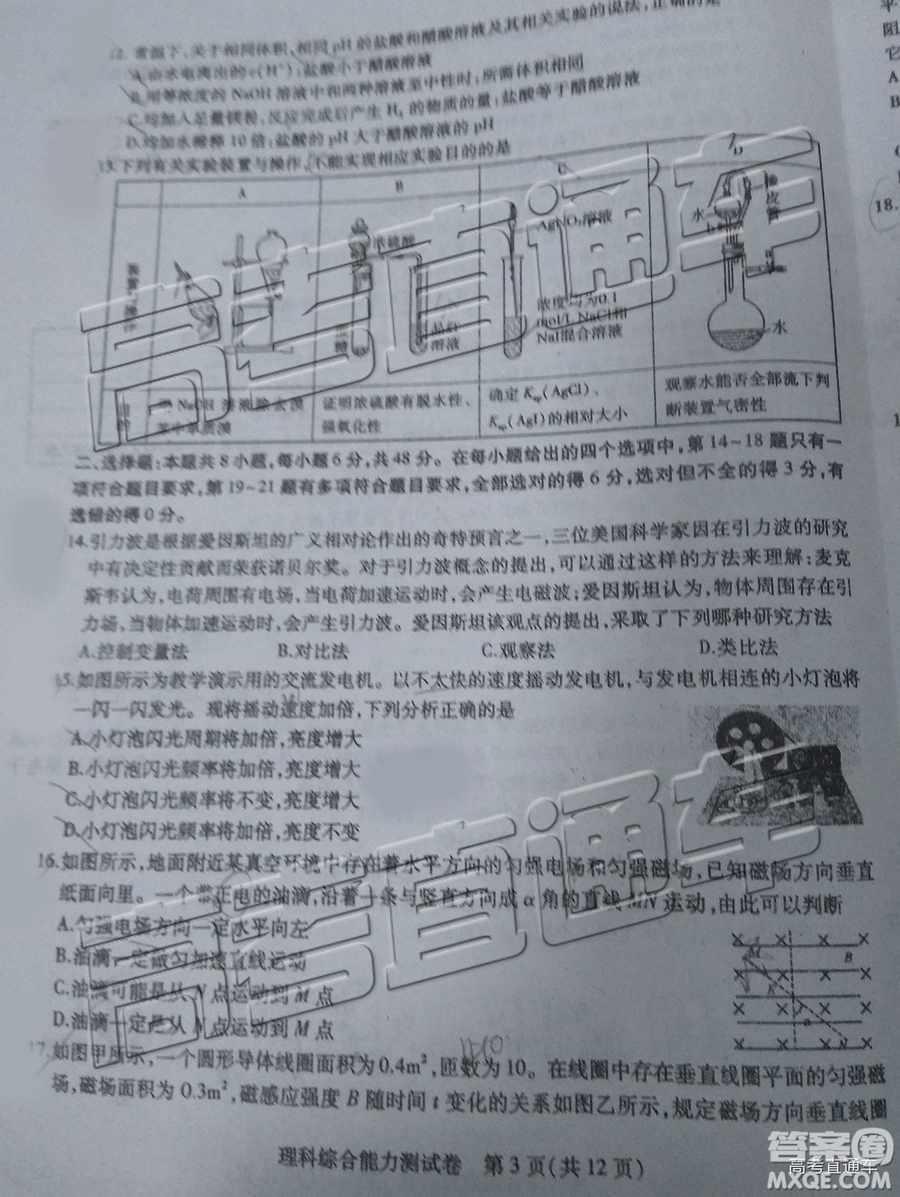 12. 常温下,关于相同体积、相同 pH 的盐酸和醋酸溶液及其相关实验的说法,正确的是
A.由水电离出的 c(H⁺):盐酸小于醋酸溶液
B.用等浓度的 NaOH 溶液中和两种溶液至中性时:所需体积相同
C.均加入足量镁粉,反应完成后产生 H₂ 的物质的量:盐酸等于醋酸溶液
D.均加水稀释 10 倍:盐酸的 pH 大于醋酸溶液的 pH
13.下列有关实验装置与操作,不能实现相应实验目的的是
A B C D
装置与操作
浓硫酸
品红溶液
AgNO₃溶液
浓度均为0.1
mol/L NaCl和
NaI混合溶液
水
橡皮管
b
水
NaOH 溶液除去溴
苯中单质溴
证明浓硫酸有脱水性、
强氧化性
确定 Ksp(AgCl)、
Ksp(AgI)的相对大小
观察水能否全部流下判
断装置气密性
二、选择题:本题共 8 小题,每小题 6 分,共 48 分。在每小题给出的四个选项中,第 14~18 题只有一
项符合题目要求,第 19~21 题有多项符合题目要求,全部选对的得 6 分,选对但不全的得 3 分,有
选错的得 0 分。
14.引力波是根据爱因斯坦的广义相对论作出的奇特预言之一,三位美国科学家因在引力波的研究
中有决定性贡献而荣获诺贝尔奖。对于引力波概念的提出,可以通过这样的方法来理解:麦克
斯韦认为,电荷周围有电场,当电荷加速运动时,会产生电磁波;爱因斯坦认为,物体周围存在引
力场,当物体加速运动时,会产生引力波。爱因斯坦该观点的提出,采取了下列哪种研究方法
A.控制变量法 B.对比法 C.观察法 D.类比法
15.如图所示为教学演示用的交流发电机。以不太快的速度摇动发电机,与发电机相连的小灯泡将
一闪一闪发光。现将摇动速度加倍,下列分析正确的是
A.小灯泡闪光周期将加倍,亮度增大
B.小灯泡闪光频率将加倍,亮度增大
C.小灯泡闪光频率将不变,亮度增大
D.小灯泡闪光频率将加倍,亮度不变
16.如图所示,地面附近某真空环境中存在着水平方向的匀强电场和匀强磁场,已知磁场方向垂直
纸面向里。一个带正电的油滴,沿着一条与竖直方向成 α 角的直线 MN 运动,由此可以判断
A.匀强电场方向一定水平向左
B.油滴一定做匀加速直线运动
C.油滴可能是从 N 点运动到 M 点
D.油滴一定是从 N 点运动到 M 点
M
B
α
N
17.如图甲所示,一个圆形导体线圈面积为 0.4m²,匝数为 10。在线圈中存在垂直线圈平面的匀强磁
场,磁场面积为 0.3m²,磁感应强度 B 随时间 t 变化的关系如图乙所示,规定磁场方向垂直线圈
理科综合能力测试卷 第 3 页(共 12 页)
平
阻
它
A
B
18.
高考直通车
高考直通车
答案圈
高考直通车
MXQE.COM